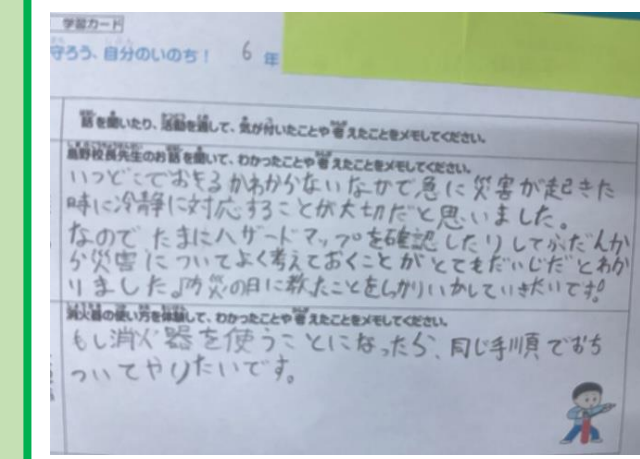 学習カード
守ろう、自分のいのち! 6年
話を聞いたり、活動を通して、気が付いたことや考えたことをメモしてください。
島野校長先生のお話を聞いて、わかったことや考えたことをメモしてください。
いつどこでおきるかわからないなかで急に災害が起きた
時に冷静に対応することが大切だと思いました。
なのでたまにハザードマップを確認したりしてふだんか
ら災害についてよく考えておくことがとてもだいじだとわか
りました。防災の日に教たことをしっかりいかしていきたいです。
消火器の使い方を体験して、わかったことや考えたことをメモしてください。
もし消火器を使うことになったら、同じ手順でおち
ついてやりたいです。